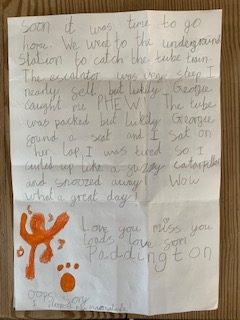 Soon it was time to go
home. We went to the underground
station to catch the tube train.
The escalator was very steep I
nearly fell, but lukily Georgie
caught me PHEW! The tube
was packed but lukily Georgie
found a seat and I sat on
her lap, I was tired so I
curled up like a fuzzy catarpeller
and snoozed away! Wow
what a great day!
Love you miss you
loads love from
Paddington
Oops sorry
I droped my marmalade